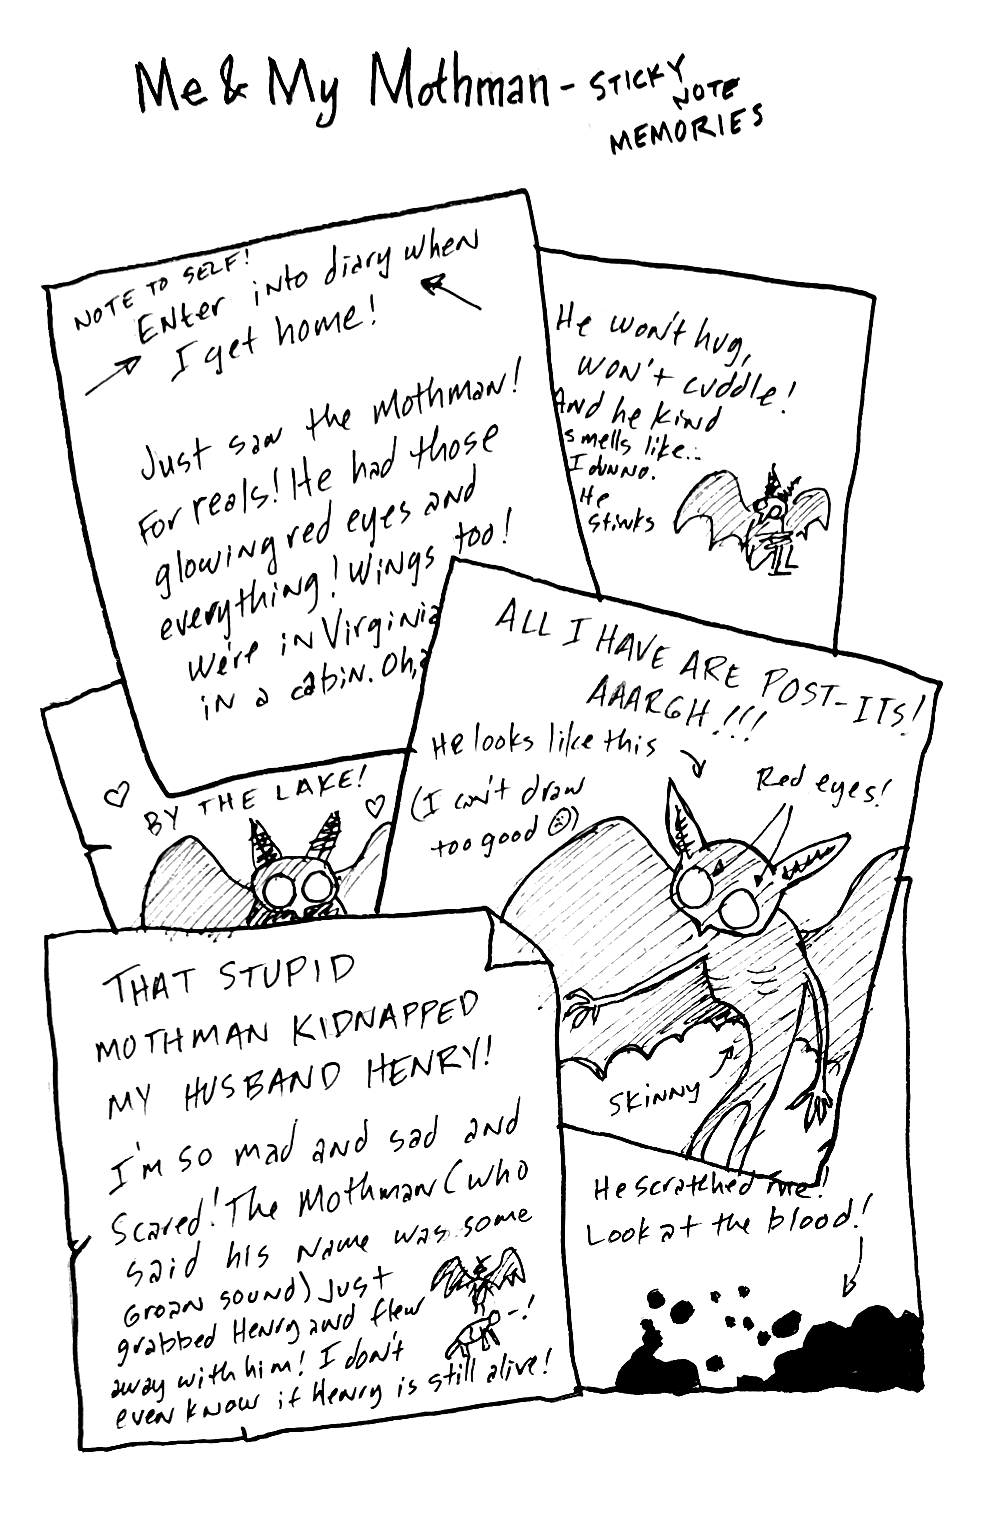 Me & My Mothman - STICKY
NOTE
MEMORIES
NOTE TO SELF!
Enter into diary when
I get home!
Just saw the Mothman!
For reals! He had those
glowing red eyes and
everything! Wings too!
We're in Virginia
in a cabin. Oh,
He won't hug,
won't cuddle!
And he kind
smells like...
I dunno.
He
stinks
ALL I HAVE ARE POST-ITS!
AAARGH!!!
He looks like this
(I can't draw
too good ☹)
Red eyes!
Skinny
♡ BY THE LAKE! ♡
THAT STUPID
MOTHMAN KIDNAPPED
MY HUSBAND HENRY!
I'm so mad and sad and
Scared! The Mothman (who
said his name was some
Groan sound) just
grabbed Henry and flew
away with him! I don't
even know if Henry is still alive!
-!
He scratched me!
Look at the blood!